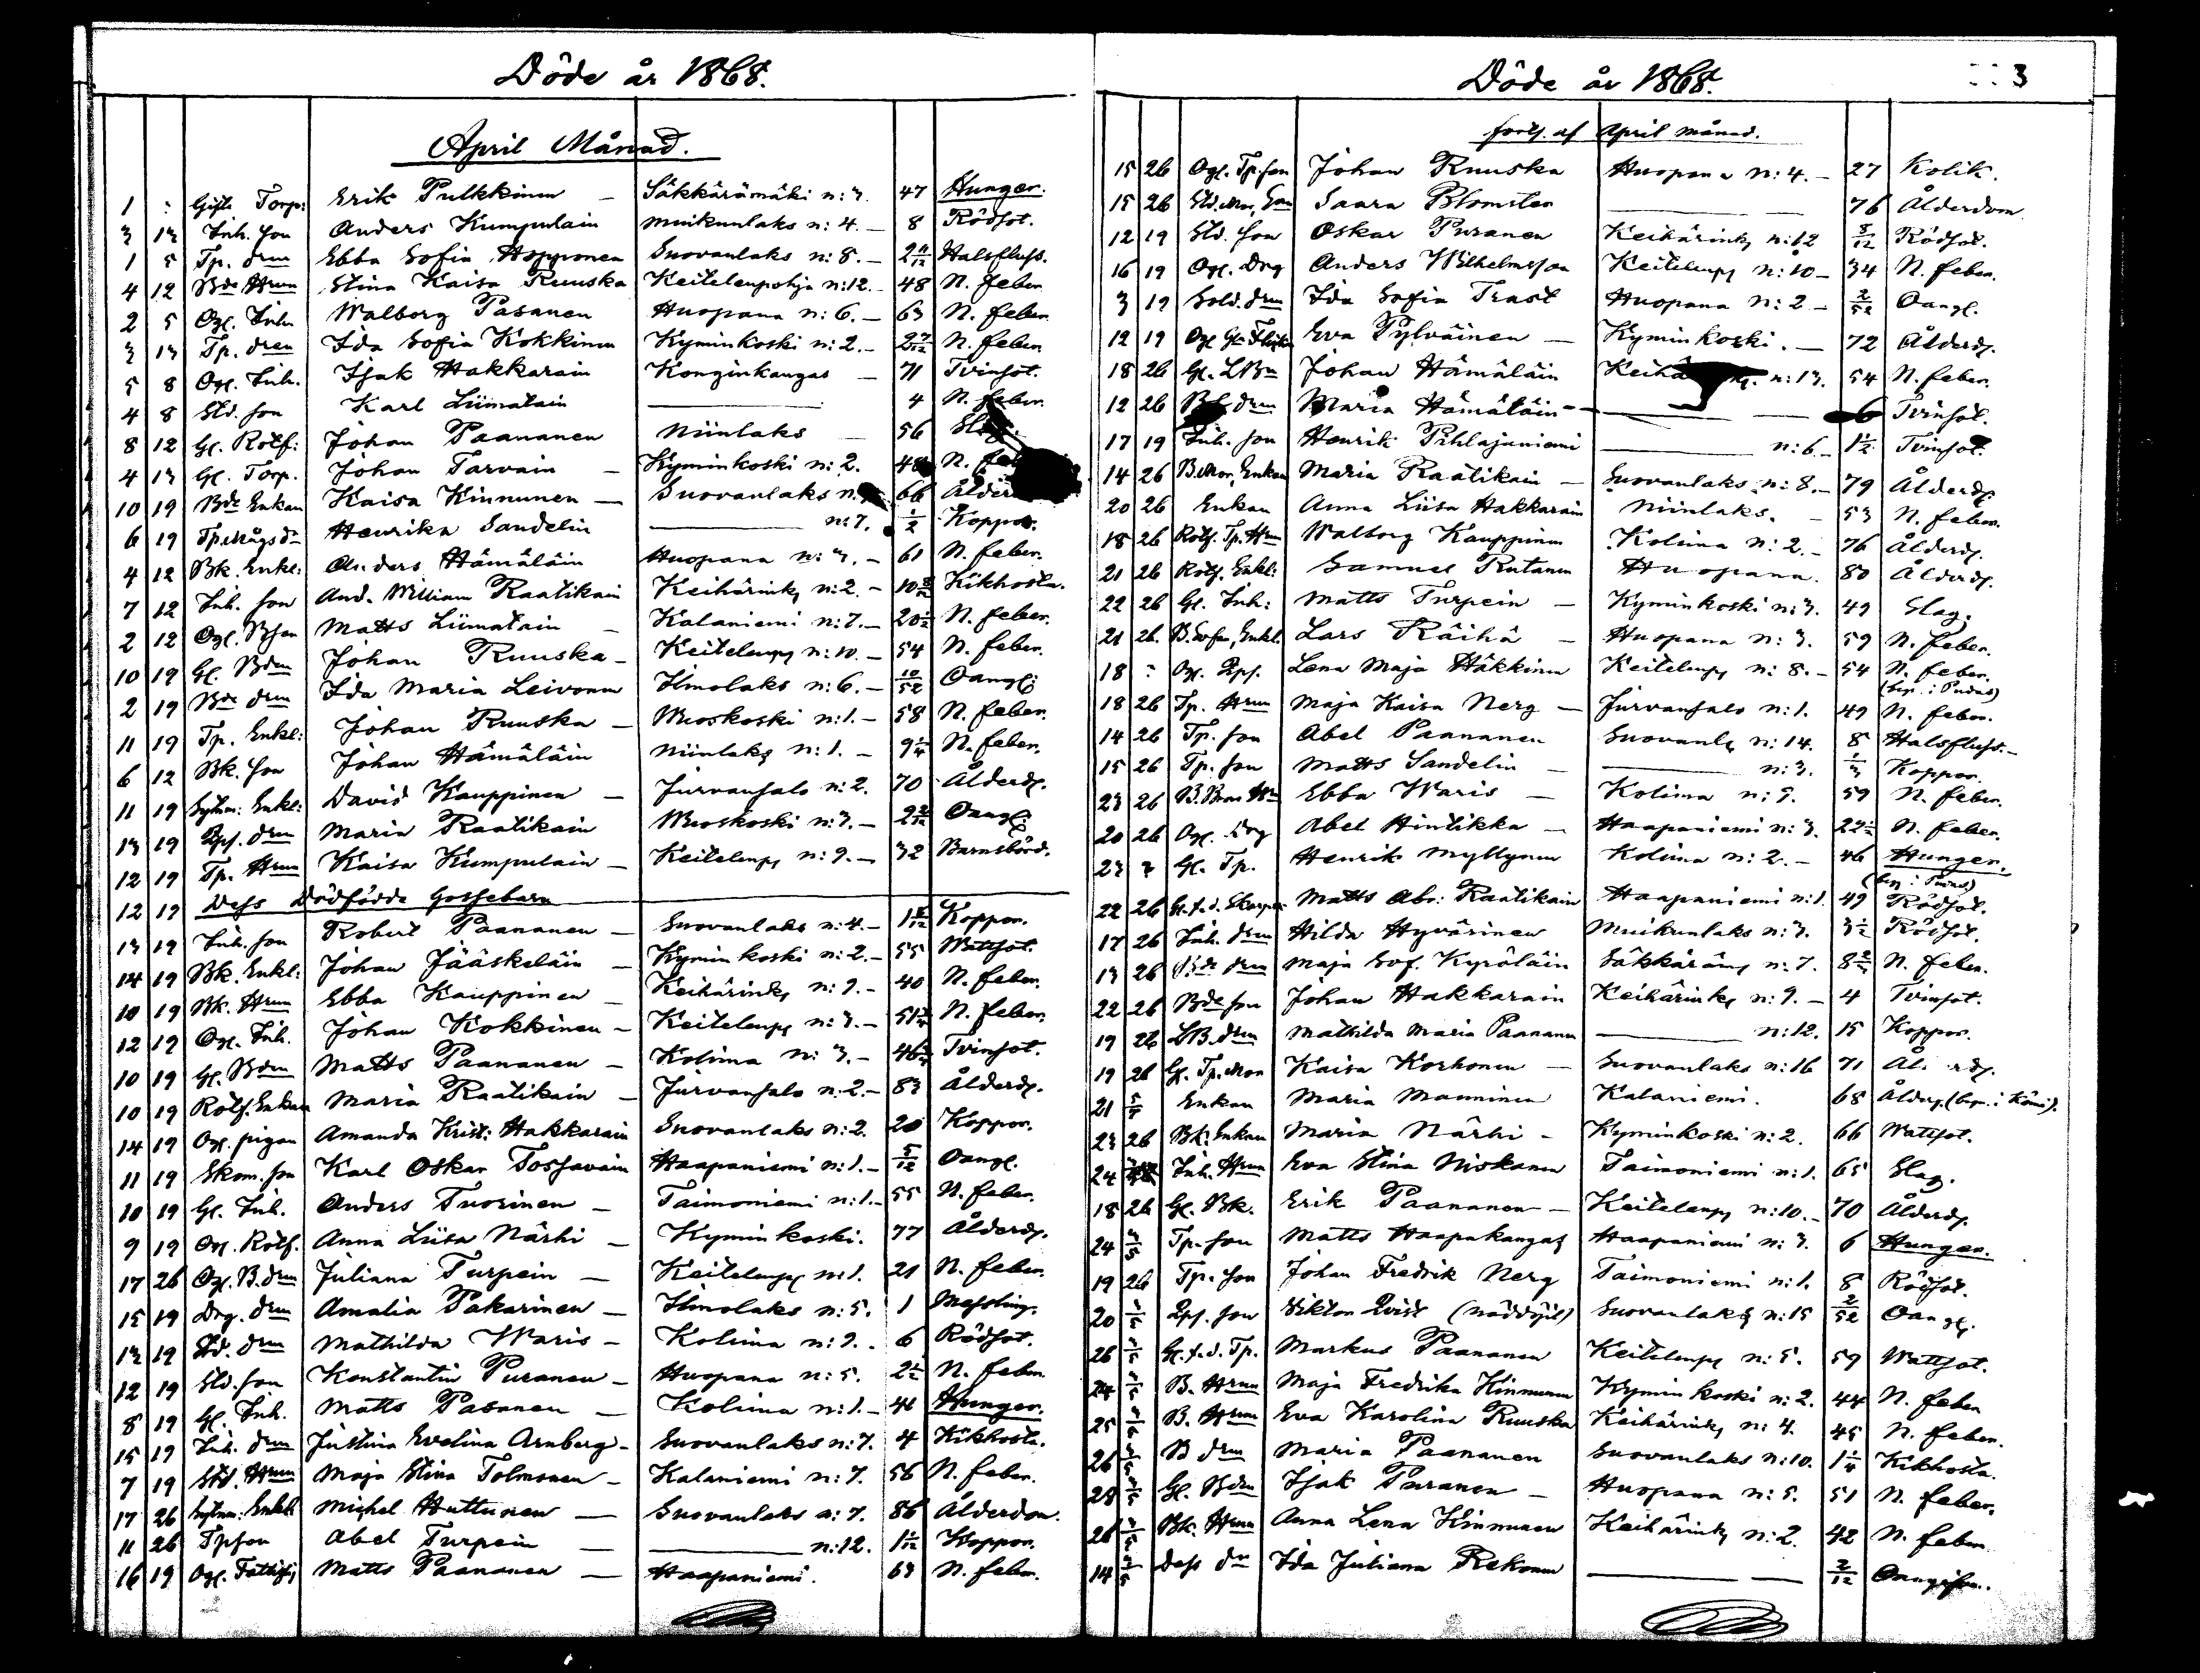 Döde år 1868.
April Månad.
1 : Gifte Torp: Erik Pulkkinen – Säkkärämäki n: 3. 47 Hunger.
3 13 Inh. son Anders Kumpulain Muikunlaks n: 4. – 8 Rödsot.
1 5 Tp. drn Ebba Sofia Hopponen Suovanlaks n: 8. – 2 11/12 Halsfluss.
4 12 Bde Hrun Stina Kaisa Ruuska Keitelenpohja n: 12. – 48 N. feber.
2 5 Ogl. Inh. Walborg Pasanen Huopana n: 6. – 63 N. feber.
3 13 Tp. dren Ida Sofia Kokkinen Kyminkoski n: 2. – 2 7/12 N. feber.
5 8 Ogl. Inh. Isak Hakkarain Konginkangas – 71 Tvinsot.
4 8 Std. son Karl Liimatain — 4 N. feber.
8 12 Gl. Rotf: Johan Paananen Niinlaks – 56 Slag.
4 13 Gl. Torp. Johan Tarvain – Kyminkoski n: 2. 48 N. feb
10 19 Bde Enkan Kaisa Kinnunen – Suovanlaks n. 66 Ålder
6 19 Tp. Mågs dr Henrika Sandelin — n: 7. 1/2 Koppor.
4 12 Bk. Enkl: Anders Hämäläin Huopana n: 3. – 61 N. feber.
7 12 Inh. son And. William Raatikain Keihärinky n: 2. – 10 8/12 Kikhosta.
2 12 Ogl. Bson Matts Liimatain – Kalaniemi n: 7. – 20 1/2 N. feber.
10 19 Gl. Bden Johan Ruuska – Keitelenpy n: 10. – 54 N. feber.
2 19 Bde drn Ida Maria Leivonen Ilmolaks n: 6. – 10/52 Oangf:
11 19 Tp. Enkl: Johan Ruuska – Wuoskoski n: 1. – 58 N. feber.
6 12 Bk. son Johan Hämäläin Niinlaks n: 1. – 9 1/4 N. feber.
11 19 Sytn: Enkl: David Kauppinen – Jurvansalo n: 2. 70 Ålderd.
13 19 Bps. drn Maria Raatikain Wuoskoski n: 3. – 2 2/12 Oangf:
12 19 Tp. Hrun Kaisa Kumpulain – Keitelenpy n: 9. – 32 Barnsbörd.
12 19 Dess Dödfödde Gossebarn
13 19 Inh. son Robert Paananen – Suovanlaks n: 4. – 1 8/12 Koppor.
14 19 Bk. Enkl: Johan Jääskeläin – Kyminkoski n: 2. – 55 Wattsot.
10 19 Bk. Hrun Ebba Kauppinen – Keihärinky n: 9. – 40 N. feber.
12 19 Ogl. Inh. Johan Kokkinen – Keitelenpy n: 3. – 51 3/4 N. feber.
10 19 Gl. Bden Matts Paananen – Kolima n: 3. – 46 Tvinsot.
10 19 Rotf. Enkan Maria Raatikain – Jurvansalo n: 2. – 83 Ålderd.
14 19 Ogl. pigan Amanda Krist: Hakkarain Suovanlaks n: 2. 20 Koppor.
11 19 Skom. son Karl Oskar Tossavain Haapaniemi n: 1. – 5/12 Oangf.
10 19 Gl. Inh. Anders Tuorinen – Taimoniemi n: 1. – 55 N. feber.
9 19 Ogl. Rotf. Anna Liisa Närhi – Kyminkoski. 77 Ålderd.
17 26 Ogl. B. drn Juliana Turpein – Keitelenpy n: 1. 21 N. feber.
15 19 Drg. drn Amalia Pakarinen – Ilmolaks n: 5. 1 Messling.
13 19 Std. drn Mathilda Waris – Kolima n: 9. . 6 Rödsot.
12 19 Std. son Konstantin Puranen – Huopana n: 5. 2 1/2 N. feber.
8 19 Gl. Inh. Matts Pasanen – Kolima n: 1. – 44 Hunger.
15 19 Inh. drn Justina Evelina Arnberg – Suovanlaks n: 7. 4 Kikhosta.
7 19 Std. Hrun Maja Stina Tolmonen – Kalaniemi n: 7. 56 N. feber.
17 26 Sytn: Enkl: Michel Huttunen – Suovanlaks n: 7. 86 Ålderdom.
11 26 Tpson Abel Turpein – — n: 12. 1 1/12 Koppor.
16 19 Ogl. Fattighj Matts Paananen – Haapaniemi. 63 N. feber.
Döde år 1868.
3
forts. af April månad.
15 26 Ogl. Tp. son Johan Ruuska Huopana n: 4. – 27 Kolik.
15 26 Std. Mor, Enk Saara Blomster — 76 Ålderdom
12 19 Std. son Oskar Puranen Keihärinky n: 12 8/12 Rödsot.
16 19 Ogl. Drg Anders Wilhelmsson Keitelenpy n: 10 – 34 N. feber.
3 19 Sold. drn Ida Sofia Trast Huopana n: 2 – 2/52 Oangf.
12 19 Ogl Eva Pylväinen – Kyminkoski. – 72 Ålderd.
18 26 Gl. LBn Johan Hämäläin Keihä n: 13. 54 N. feber.
12 26 drn Maria Hämäläin – — 6 Tvinsot.
17 19 Inh. son Henrik Pihlajaniemi — n: 6. 1 1/2 Tvinsot.
14 26 B. Mor, Enkan Maria Raatikain – Suovanlaks n: 8. – 79 Ålderd.
20 26 Enkan Anna Liisa Hakkarain Niinlaks. – 53 N. feber.
18 26 Rotf. Tp. Hrn Walborg Kauppinen Kolima n: 2. – 76 Ålderd.
21 26 Rotf. Enkl: Samuel Rutanen Huopana. 80 Ålderd.
22 26 Gl. Inh: Matts Turpein – Kyminkoski n: 3. 49 Slag.
21 26. Enkl. Lars Räihä – Huopana n: 3. 59 N. feber.
18 : Ogl. Bps. Lena Maja Häkkinen Keitelenpy n: 8. – 54 N. feber. (beg. i Pudas)
18 26 Tp. Hrun Maja Kaisa Nerg – Jurvansalo n: 1. 49 N. feber.
14 26 Tp. son Abel Paananen Suovanlx n: 14. 8 Halsfluss. –
15 26 Tp. son Matts Sandelin – — n: 3. 1/3 Koppor.
23 26 Ebba Waris – Kolima n: 5. 59 N. feber.
20 26 Ogl. Drg Abel Hintikka – Haapaniemi n: 3. 22 1/2 N. feber.
23 Gl. Tp. Henrik Myllynen Kolima n: 2. – 46 Hunger. (beg i Pudas)
22 26 Matts Abr: Raatikain Haapaniemi n: 1. 49 Rödsot.
17 26 Inh. drn Hilda Hyvärinen Muikunlaks n: 3. 3 1/2 Rödsot.
13 26 Bde drn Maja Sof. Kyröläin Säkkäräms n: 7. 8 2/3 N. feber.
22 26 Bde son Johan Hakkarain Keihärinky n: 9. – 4 Tvinsot.
19 26 LB. drn Mathilda Maria Paananen — n: 12. 15 Koppor.
19 26 Gl. Tp. Mor Kaisa Korhonen – Suovanlaks n: 16 71 Ål rd.
21 5/4 Enkan Maria Manninen Kalaniemi. 68 Åldrd. (beg. i Kömi).
23 26 Bk. Enkan Maria Närhi – Kyminkoski n: 2. 66 Wattsot.
24 Inh. Hrun Eva Stina Niskanen Taimoniemi n: 1. 65 Slag.
18 26 Gl. Bk. Erik Paananen – Keitelenpy n: 10. – 70 Ålderd.
24 3/5 Tp. son Matts Haapakangas Haapaniemi n: 3. 6 Hunger.
19 26 Tp. son Johan Fredrik Nerg Taimoniemi n: 1. 8 Rödsot.
20 3/5 Bps. son Viktor Qvist (nöddöpt) Suovanlaks n: 15 2/52 Oangf.
26 3/5 Gl. f. d. Tp. Markus Paananen Keitelenpy n: 5. 59 Wattsot.
24 3/5 B. Hrun Maja Fredrika Kinnunen Kyminkoski n: 2. 44 N. feber
25 3/5 B. Hrun Eva Karolina Ruuska Keihärinky n: 4. 45 N. feber.
26 3/5 B drn Maria Paananen Suovanlaks n: 10. 1 1/4 Kikhosta.
28 3/5 Gl. Bden Isak Puranen – Huopana n: 5. 51 N. feber.
26 3/5 Bk. Hrun Anna Lena Kinnunen Keihärinky n: 2. 42 N. feber
14 3/5 Dess dr Ida Juliana Rekonen — 2/12